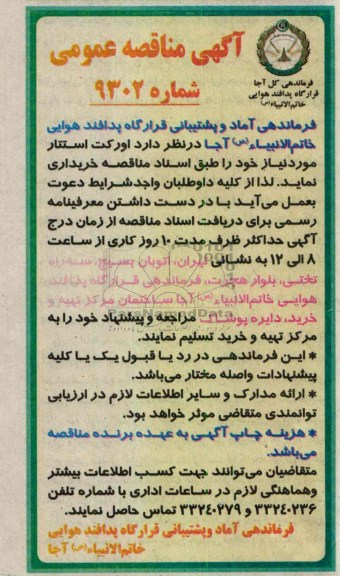 آگهی مناقصه عمومی
شماره ۹۳۰۲
فرماندهی کل آجا
قرارگاه پدافند هوایی
خاتم‌الانبیاء(ص)
فرماندهی آماد و پشتیبانی قرارگاه پدافند هوایی
خاتم‌الانبیاء(ص) آجا درنظر دارد اورکت استتار
موردنیاز خود را طبق اسناد مناقصه خریداری
نماید. لذا از کلیه داوطلبان واجدشرایط دعوت
بعمل می‌آید با در دست داشتن معرفینامه
رسمی برای دریافت اسناد مناقصه از زمان درج
آگهی حداکثر ظرف مدت ۱۰ روز کاری از ساعت
۸ الی ۱۲ به نشانی تهران، اتوبان بسیج، سه‌راه
تختی، بلوار هجرت، فرماندهی قرارگاه پدافند
هوایی خاتم‌الانبیاء(ص) آجا ساختمان مرکز تهیه و
خرید، دایره پوشاک مراجعه و پیشنهاد خود را به
مرکز تهیه و خرید تسلیم نمایند.
* این فرماندهی در رد یا قبول یک یا کلیه
پیشنهادات واصله مختار می‌باشد.
* ارائه مدارک و سایر اطلاعات لازم در ارزیابی
توانمندی متقاضی موثر خواهد بود.
* هزینه چاپ آگهی به عهده برنده مناقصه
می‌باشد.
متقاضیان می‌توانند جهت کسب اطلاعات بیشتر
وهماهنگی لازم در ساعات اداری با شماره تلفن
۳۳۲۴۰۲۳۶ و ۳۳۲۴۰۲۷۹ تماس حاصل نمایند.
فرماندهی آماد وپشتیبانی قرارگاه پدافند هوایی
خاتم‌الانبیاء(ص) آجا